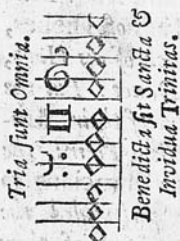 Tria ſunt Omnia.
III
Benedicta ſit Sancta &
Invidua Trinitas.